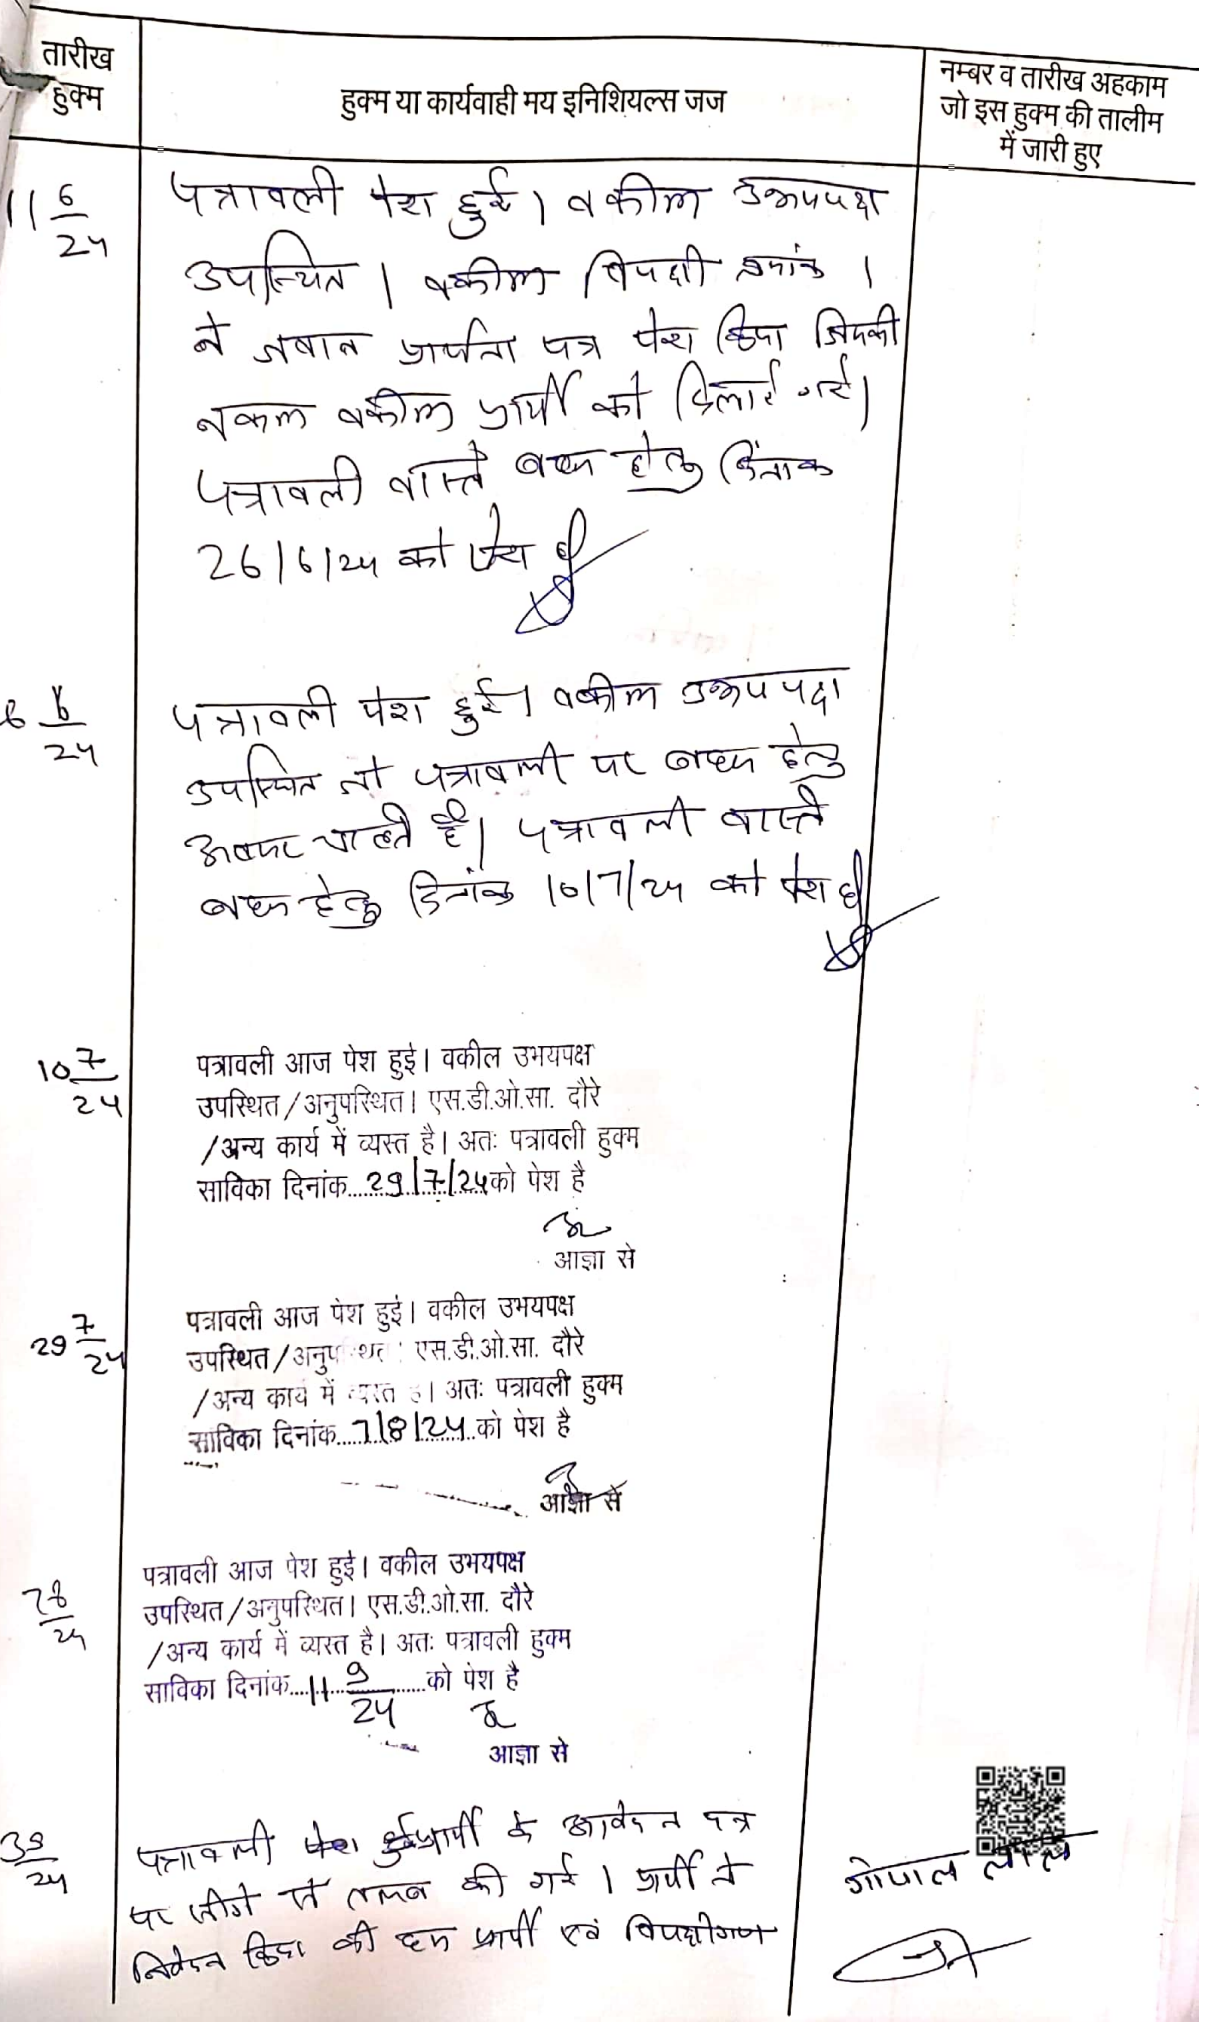 तारीख
हुक्म
हुक्म या कार्यवाही मय इनिशियल्स जज
नम्बर व तारीख अहकाम
जो इस हुक्म की तालीम
में जारी हुए
11 6/24
पत्रावली पेश हुई। वकील उभयपक्ष
उपस्थित। वकील विपक्षी क्रमांक 1
ने जबाव प्रार्थना पत्र पेश किया जिसकी
नकल वकील प्रार्थी को दिलाई गई।
पत्रावली वास्ते बहस हेतु दिनांक
26/6/24 को पेश हो
6/24
पत्रावली पेश हुई। वकील उभयपक्ष
उपस्थित जो पत्रावली पर बहस हेतु
अवसर चाहते है। पत्रावली वास्ते
बहस हेतु दिनांक 10/7/24 को पेश हो
10 7/24
पत्रावली आज पेश हुई। वकील उभयपक्ष
उपस्थित/अनुपस्थित। एस.डी.ओ.सा. दौरे
/अन्य कार्य में व्यस्त है। अतः पत्रावली हुक्म
साविका दिनांक...29/7/24 को पेश है
आज्ञा से
29 7/24
पत्रावली आज पेश हुई। वकील उभयपक्ष
उपस्थित/अनुपस्थित। एस.डी.ओ.सा. दौरे
/अन्य कार्य में व्यस्त है। अतः पत्रावली हुक्म
साविका दिनांक...7/8/24...को पेश है
आज्ञा से
7 8/24
पत्रावली आज पेश हुई। वकील उभयपक्ष
उपस्थित/अनुपस्थित। एस.डी.ओ.सा. दौरे
/अन्य कार्य में व्यस्त है। अतः पत्रावली हुक्म
साविका दिनांक...11 9/24...को पेश है
आज्ञा से
9/24
पत्रावली पेश हुई प्रार्थी के आवेदन पत्र
पर जीगे से तलब की गई। प्रार्थी ने
निवेदन किया की हम प्रार्थी एवं विपक्षीगण
गोपाल लाल